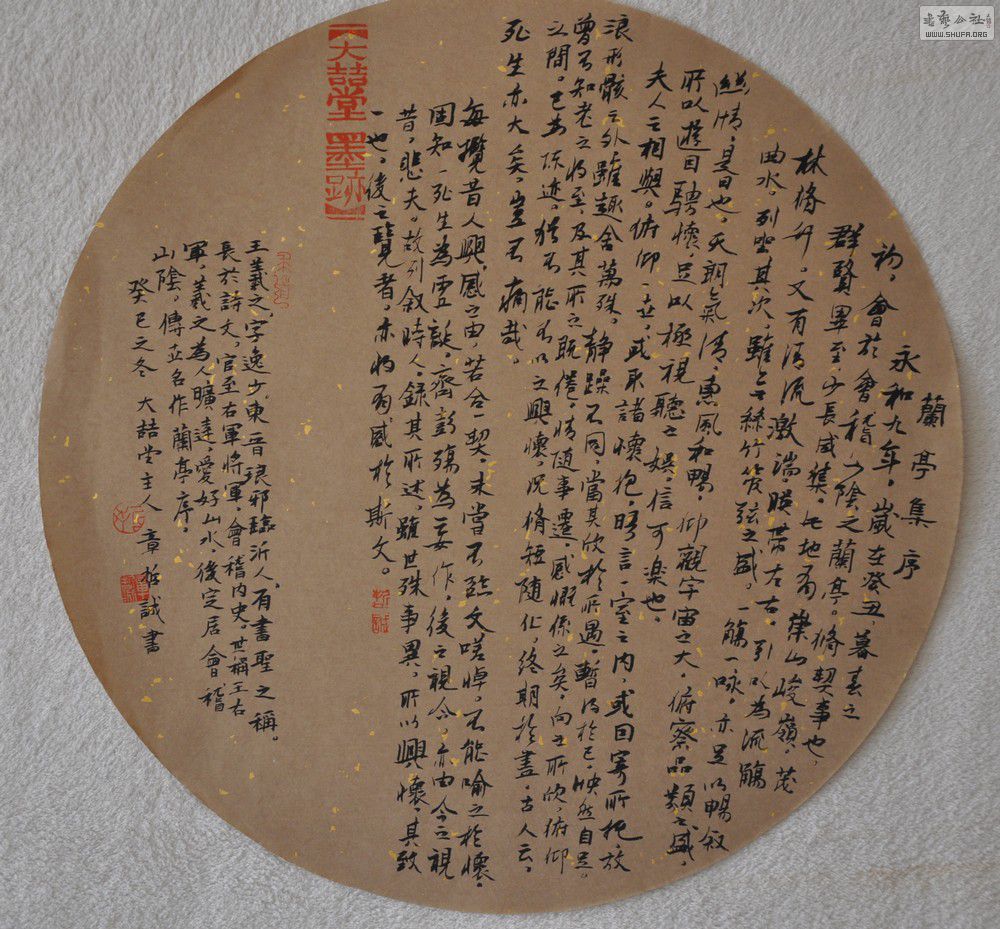 蘭亭集序
永和九年,歲在癸丑,暮春之
初,會於會稽山陰之蘭亭。脩禊事也,
群賢畢至,少長咸集。此地有崇山峻嶺,茂
林脩竹。又有清流激湍,映帶左右。引以為流觴
曲水。列坐其次,雖無絲竹管弦之盛,一觴一咏,亦足以暢敘
幽情,是日也,天朗氣清,惠風和暢,仰觀宇宙之大,俯察品類之盛,
所以遊目騁懷,足以極視聽之娛,信可樂也。
夫人之相與。俯仰一世,或取諸懷抱,晤言一室之內,或因寄所托,放
浪形骸之外,雖趣舍萬殊,靜躁不同,當其欣於所遇,暫得於己,怏然自足,
曾不知老之將至,及其所之既倦,情隨事遷,感慨係之矣。向之所欣,俯仰
之間。已為陳迹,猶不能不以之興懷,況脩短隨化,終期於盡,古人云,
死生亦大矣,豈不痛哉。
每攬昔人興感之由,若合一契,未嘗不臨文嗟悼不能喻之於懷,
固知一死生為虛誕,齊彭殤為妄作,後之視今,亦由今之視
昔,悲夫。故列敘時人,錄其所述,雖世殊事異,所以興懷,其致
一也,後之覽者,亦將有感於斯文。
哲誠
大喆堂墨跡
王羲之,字逸少,東晉琅邪臨沂人,有書聖之稱。
長於詩文,官至右軍將軍,會稽內史,世稱王右
軍,羲之為人曠達,愛好山水,後定居會稽
山陰,傳世名作蘭亭序。
癸巳之冬 大喆堂主人 章哲誠書
書藝公社
WWW.SHUFA.ORG